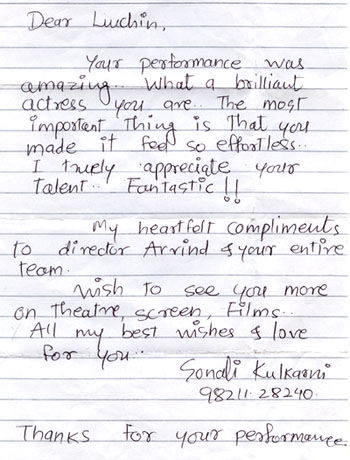 Dear Luuchin,
Your performance was
amazing.. What a brilliant
actress you are.. The most
important Thing is That you
made it feel so effortless..
I truely appreciate your
Talent.. Fantastic !!
My heartfelt compliments
to director Arvind & your entire
team.
Wish To see you more
on Theatre, screen, Films..
All my best wishes & love
for you..
Sonali Kulkarni
98211.28240.
Thanks for your performance.